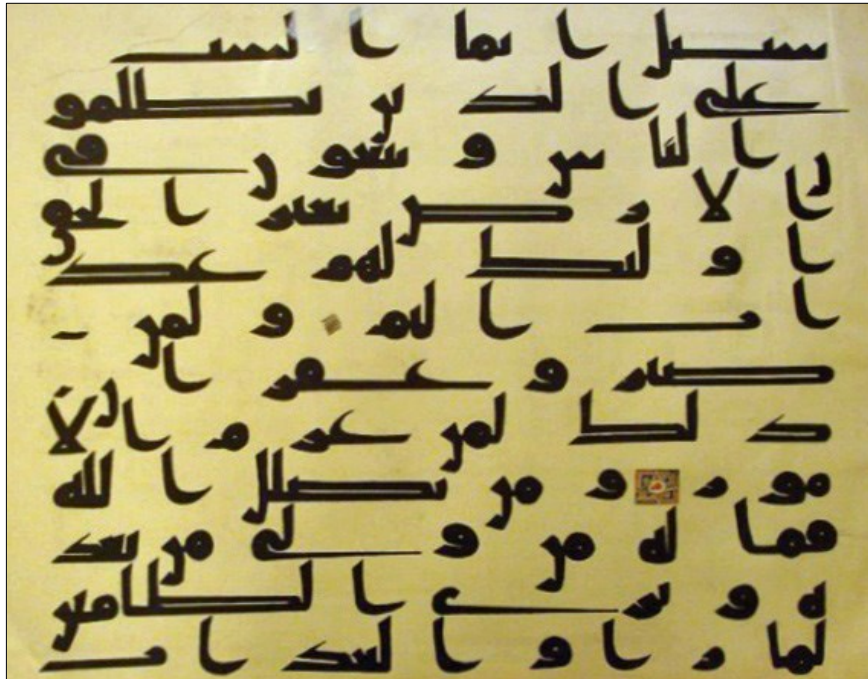 سبيل انما السبيل
على الذين يظلمو
ن الناس و يبغون في
الارض بغير الحق
اولئك لهم عذ
اب اليم و لمن
صبر و غفر ان
ذلك لمن عزم الا
مور و من يضلل الله
فما له من و لي من بعد
ه و ترى الظلمين
لما راوا العذاب